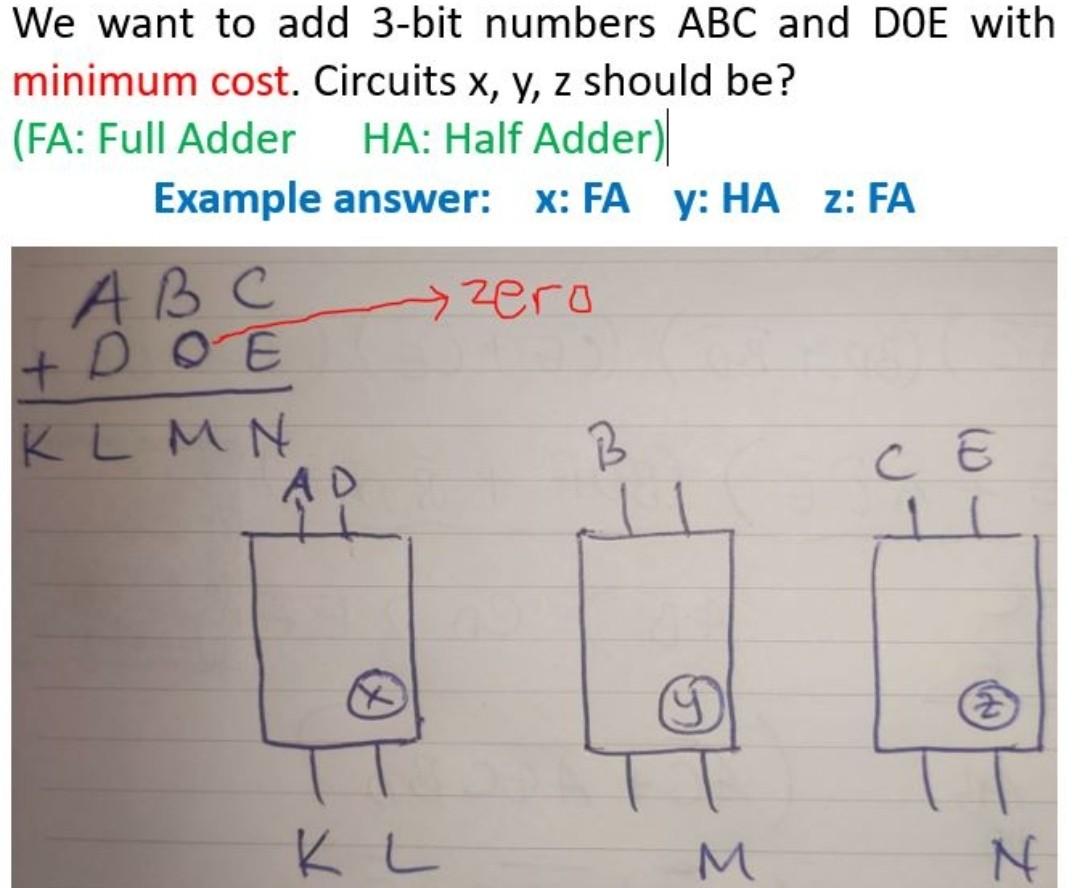 We want to add 3-bit numbers ABC and D0E with
minimum cost. Circuits x, y, z should be?
(FA: Full Adder HA: Half Adder)
Example answer: x: FA y: HA z: FA
A B C → zero
+ D 0 E
K L M N
A D
B
C E
x
y
z
K L
M
N